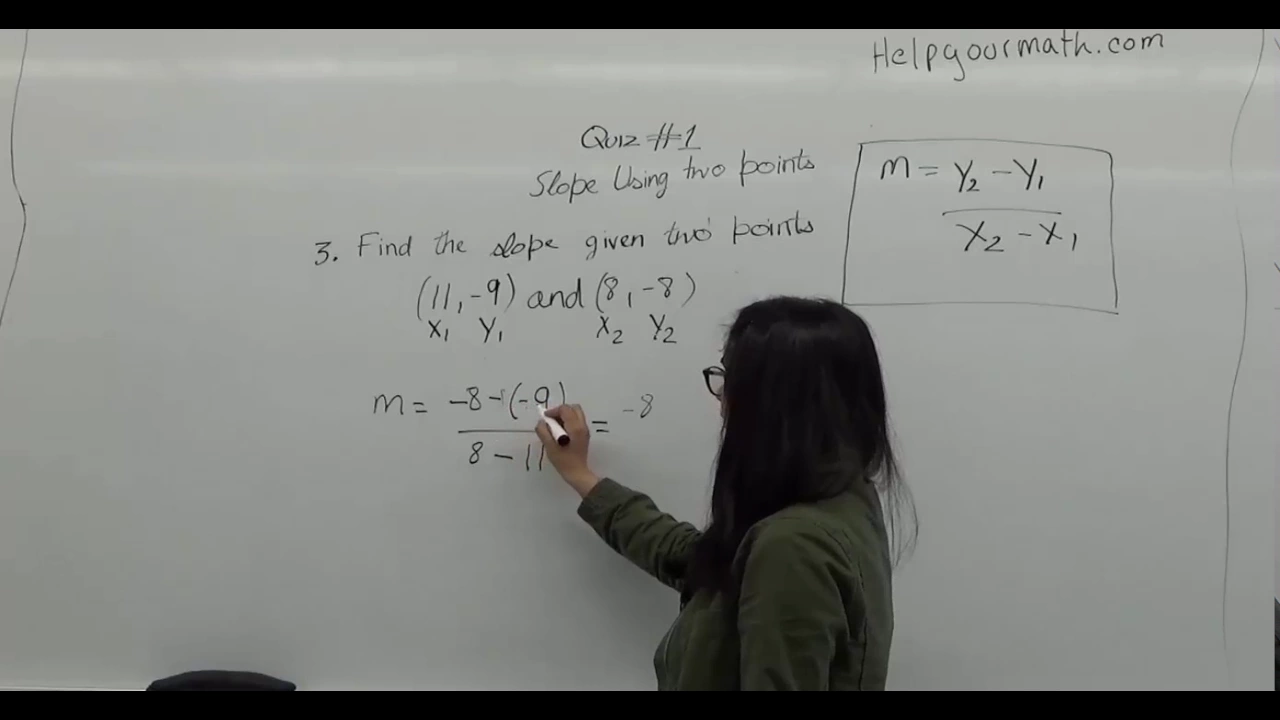 Helpyourmath.com
Quiz #1
Slope Using two points
m = Y₂ - Y₁
X₂ - X₁
3. Find the slope given two points
(11, -9) and (8, -8)
X₁ Y₁ X₂ Y₂
m = -8 - (-9) = -8
8 - 11